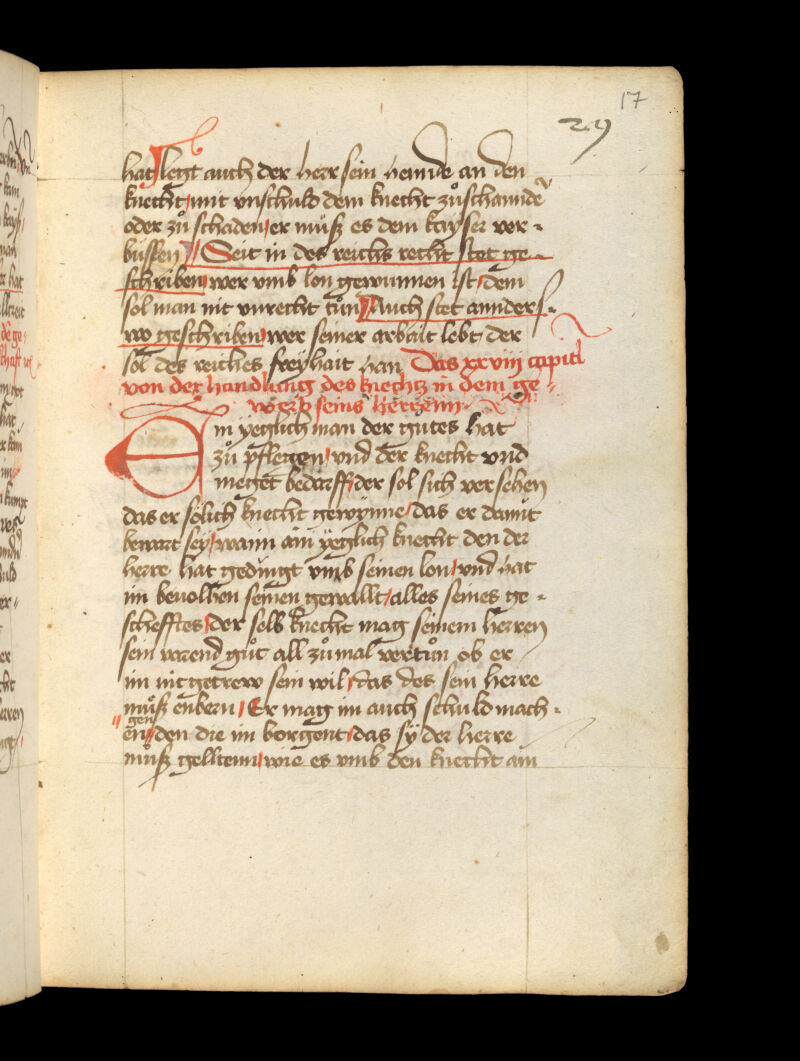 17
29
hat / legt auch der herr sein hennde an den
knecht / mit vnschuld dem knecht zůschannde
oder zů schaden / er můß es dem kayser ver-
büssen / Seit in des reichs recht stet ge-
schriben / wer vmb lon gewunnen ist / dem
sol man nit vnrecht tůn / Auch stet annders-
wo geschriben / wer seiner arbait lebt der
sol des reiches freyhait han Das xxviij capitl
von der handlung des knechtz in dem ge-
werb seins herrenn
Ein yeglich man der gůtes hat
zů pflegen / vnd der knecht vnd
meget bedarff / der sol sich versehen
das er sölich knecht gewynne / das er damit
bewart sey / wann ain yeglich knecht den der
herre hat gedingt vmb seinen lon / vnd hat
im beuolhen seinen gewallt / alles seines ge-
schefftes / der selb knecht mag seinem herren
sein varend gůt all zůmal vertůn ob er
im nit getrew sein wil / das des sein herre
můß enbern / Er mag im auch schuld mach-
en / gen den die im borgent / das sy der herre
můß gelltenn / wie es vmb den knecht am